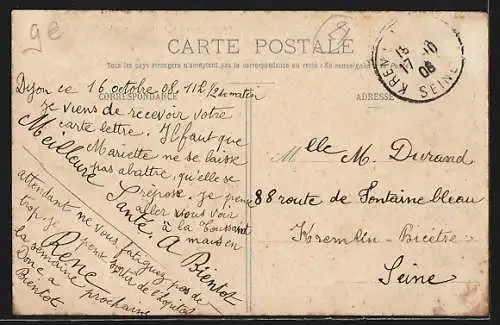 9e
CARTE POSTALE
Tous les pays étrangers n'acceptent pas la correspondance au recto
CORRESPONDANCE
ADRESSE
KREML
17 -10
08
SEINE
Dijon ce 16 octobre 08. 11h 1/2 du matin
je viens de recevoir votre
carte lettre. Il faut que
Mariette ne se laisse
pas abattre, qu'elle se
repose. je pense
aller vous voir
à la Toussaint
mais en
attendant ne vous fatiguez pas de
trop. je pense sortir de l'hopital
la semaine prochaine
Donc a
Bientot
Meilleure Santé. A Bientot
René
Mlle M. Durand
88 route de Fontainebleau
Kremlin-Bicêtre
Seine